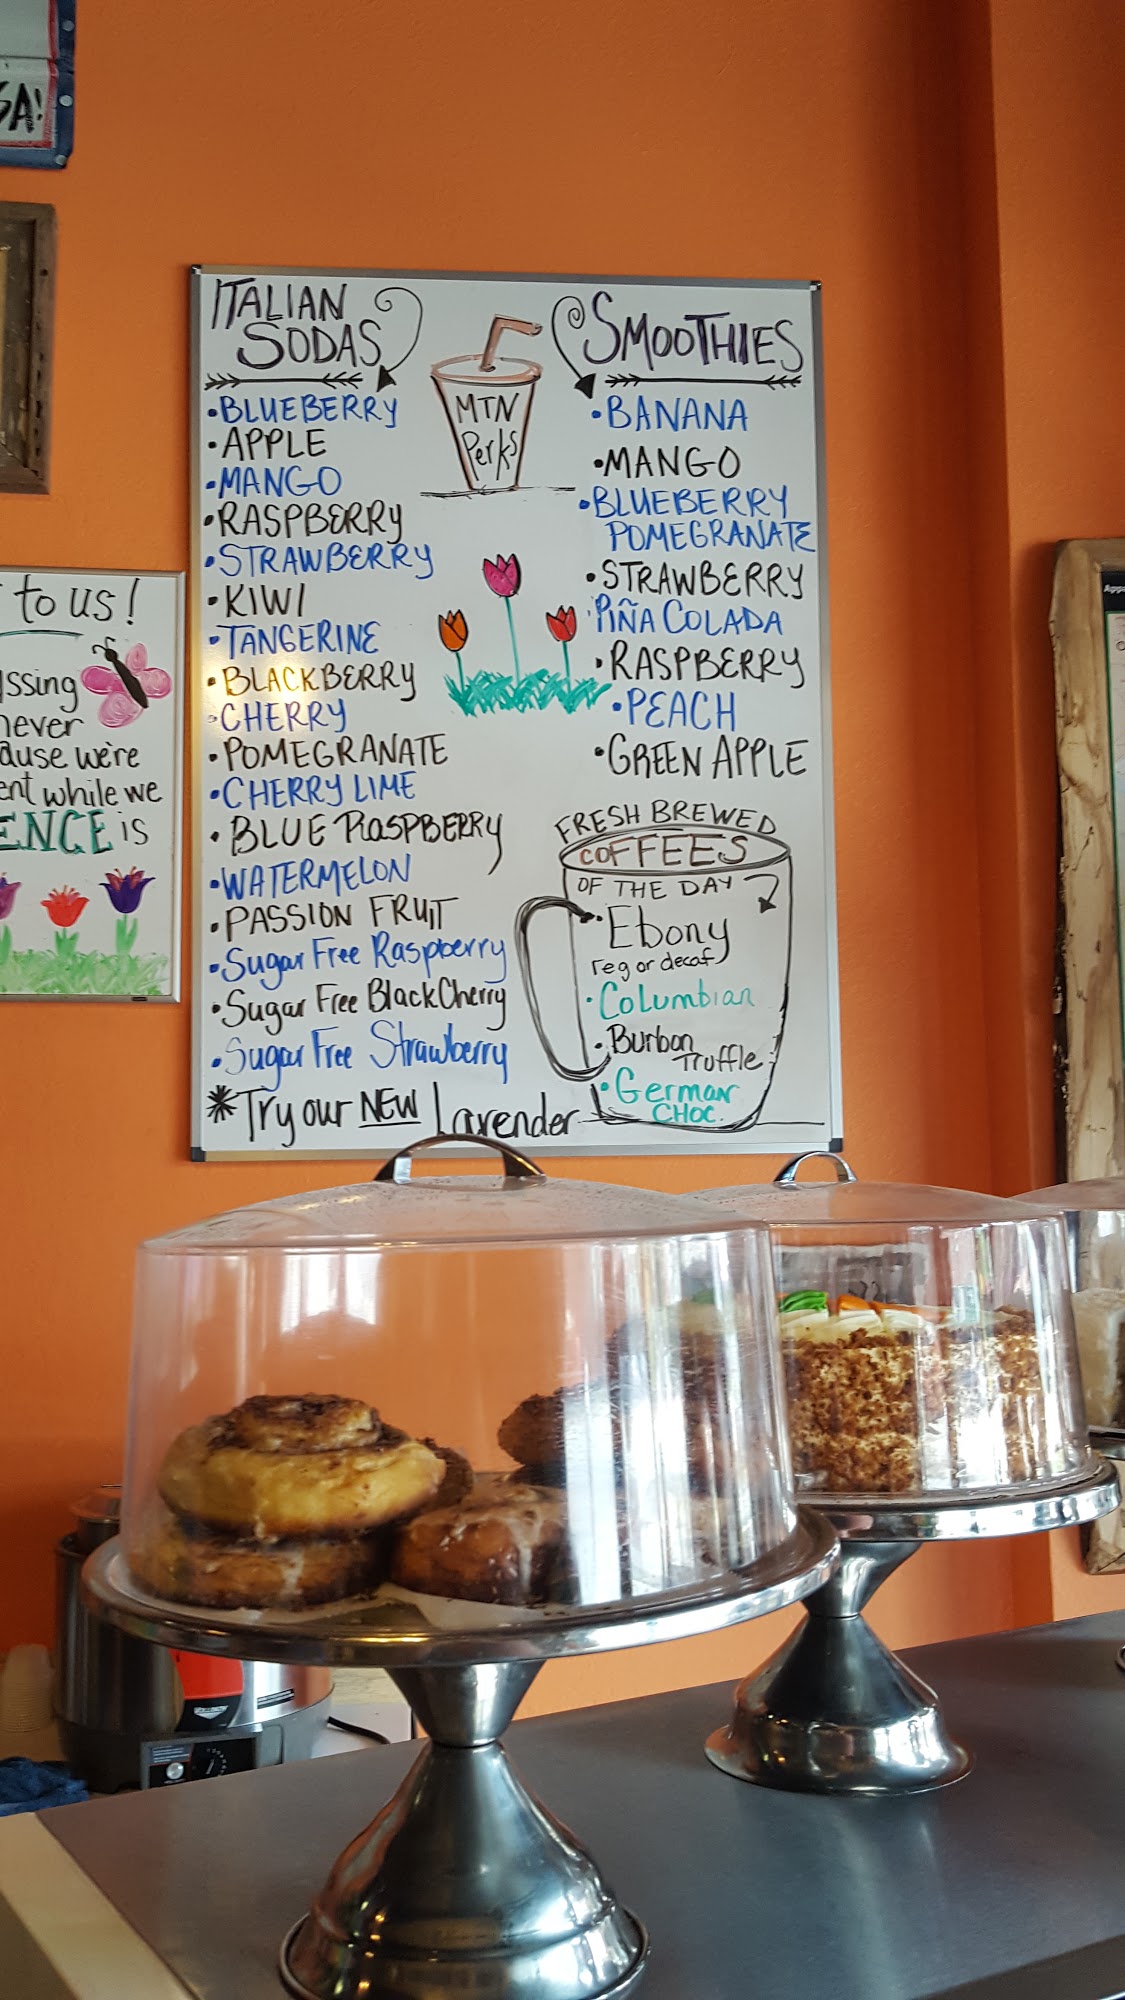 SA!
to us!
never
ause we're
ent while we
ENCE is
ITALIAN
SODAS
•BLUEBERRY
•APPLE
•MANGO
•RASPBERRY
•STRAWBERRY
•KIWI
•TANGERINE
•BLACKBERRY
•CHERRY
•POMEGRANATE
•CHERRY LIME
•BLUE RaSPBERRY
•WATERMELON
•PASSION FRUIT
•Sugar Free Raspberry
•Sugar Free Black Cherry
•Sugar Free Strawberry
*Try our NEW Lavender
MTN
Perks
SMOOTHIES
•BANANA
•MANGO
•BLUEBERRY
POMEGRANATE
•STRAWBERRY
•PIÑA COLADA
•RASPBERRY
•PEACH
•GREEN APPLE
FRESH BREWED
COFFEES
OF THE DAY
•Ebony
reg or decaf
•Columbian
•Burbon
Truffle
•German
CHOC.